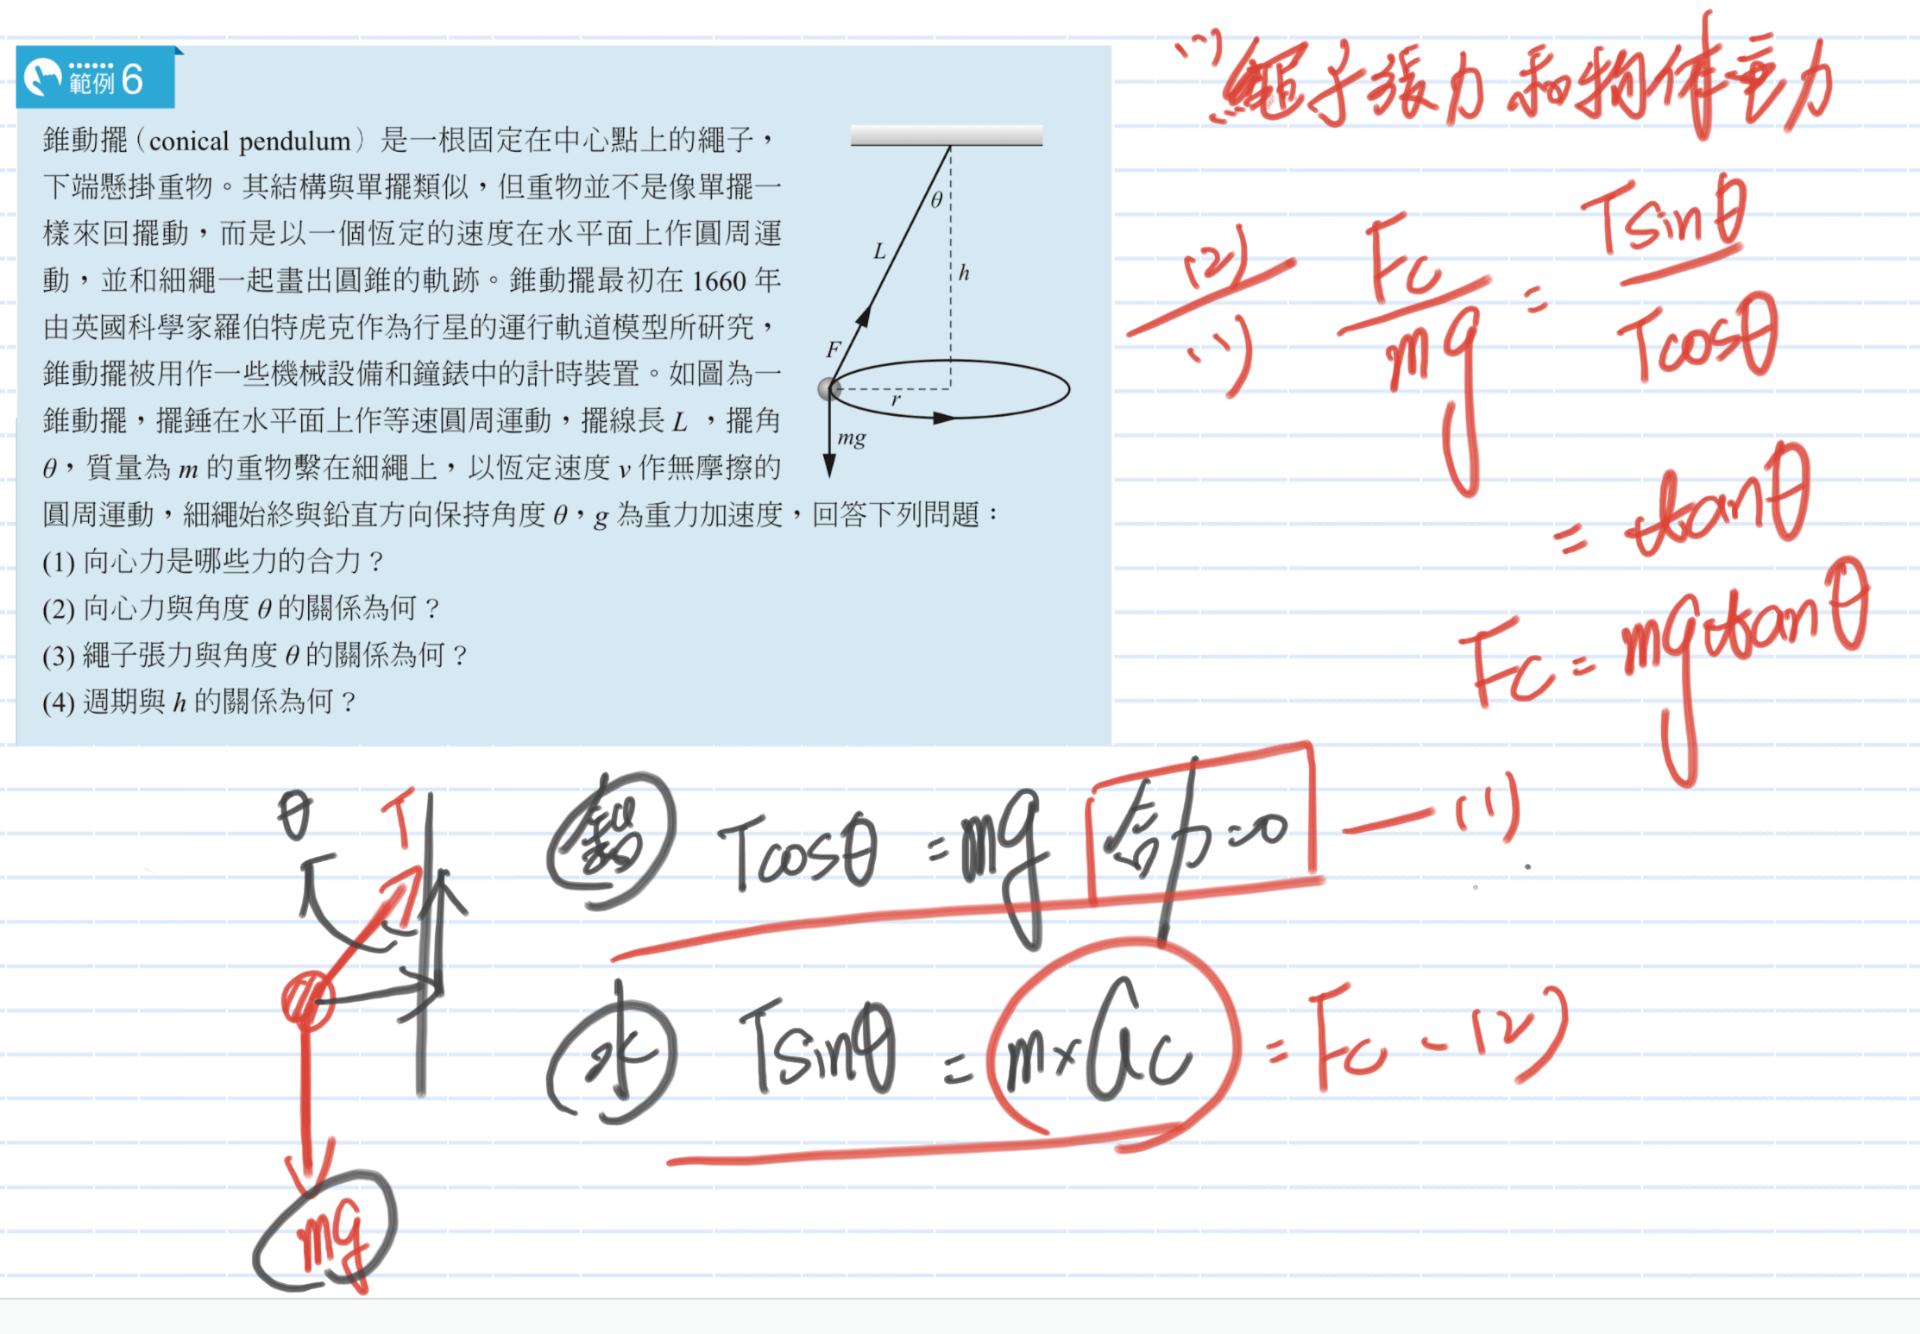 範例 6
錐動擺（conical pendulum）是一根固定在中心點上的繩子，
下端懸掛重物。其結構與單擺類似，但重物並不是像單擺一
樣來回擺動，而是以一個恆定的速度在水平面上作圓周運
動，並和細繩一起畫出圓錐的軌跡。錐動擺最初在 1660 年
由英國科學家羅伯特虎克作為行星的運行軌道模型所研究，
錐動擺被用作一些機械設備和鐘錶中的計時裝置。如圖為一
錐動擺，擺錘在水平面上作等速圓周運動，擺線長 L ，擺角
θ，質量為 m 的重物繫在細繩上，以恆定速度 v 作無摩擦的
圓周運動，細繩始終與鉛直方向保持角度 θ，g 為重力加速度，回答下列問題：
(1) 向心力是哪些力的合力？
(2) 向心力與角度 θ 的關係為何？
(3) 繩子張力與角度 θ 的關係為何？
(4) 週期與 h 的關係為何？
θ
L
h
F
r
mg
(1) 繩子張力和物体重力
(2)/(1) Fc/mg = Tsinθ/Tcosθ
= tanθ
Fc = mgtanθ
θ T
mg
Tcosθ = mg 合力=0 — (1)
水 Tsinθ = m×ac = Fc - (2)